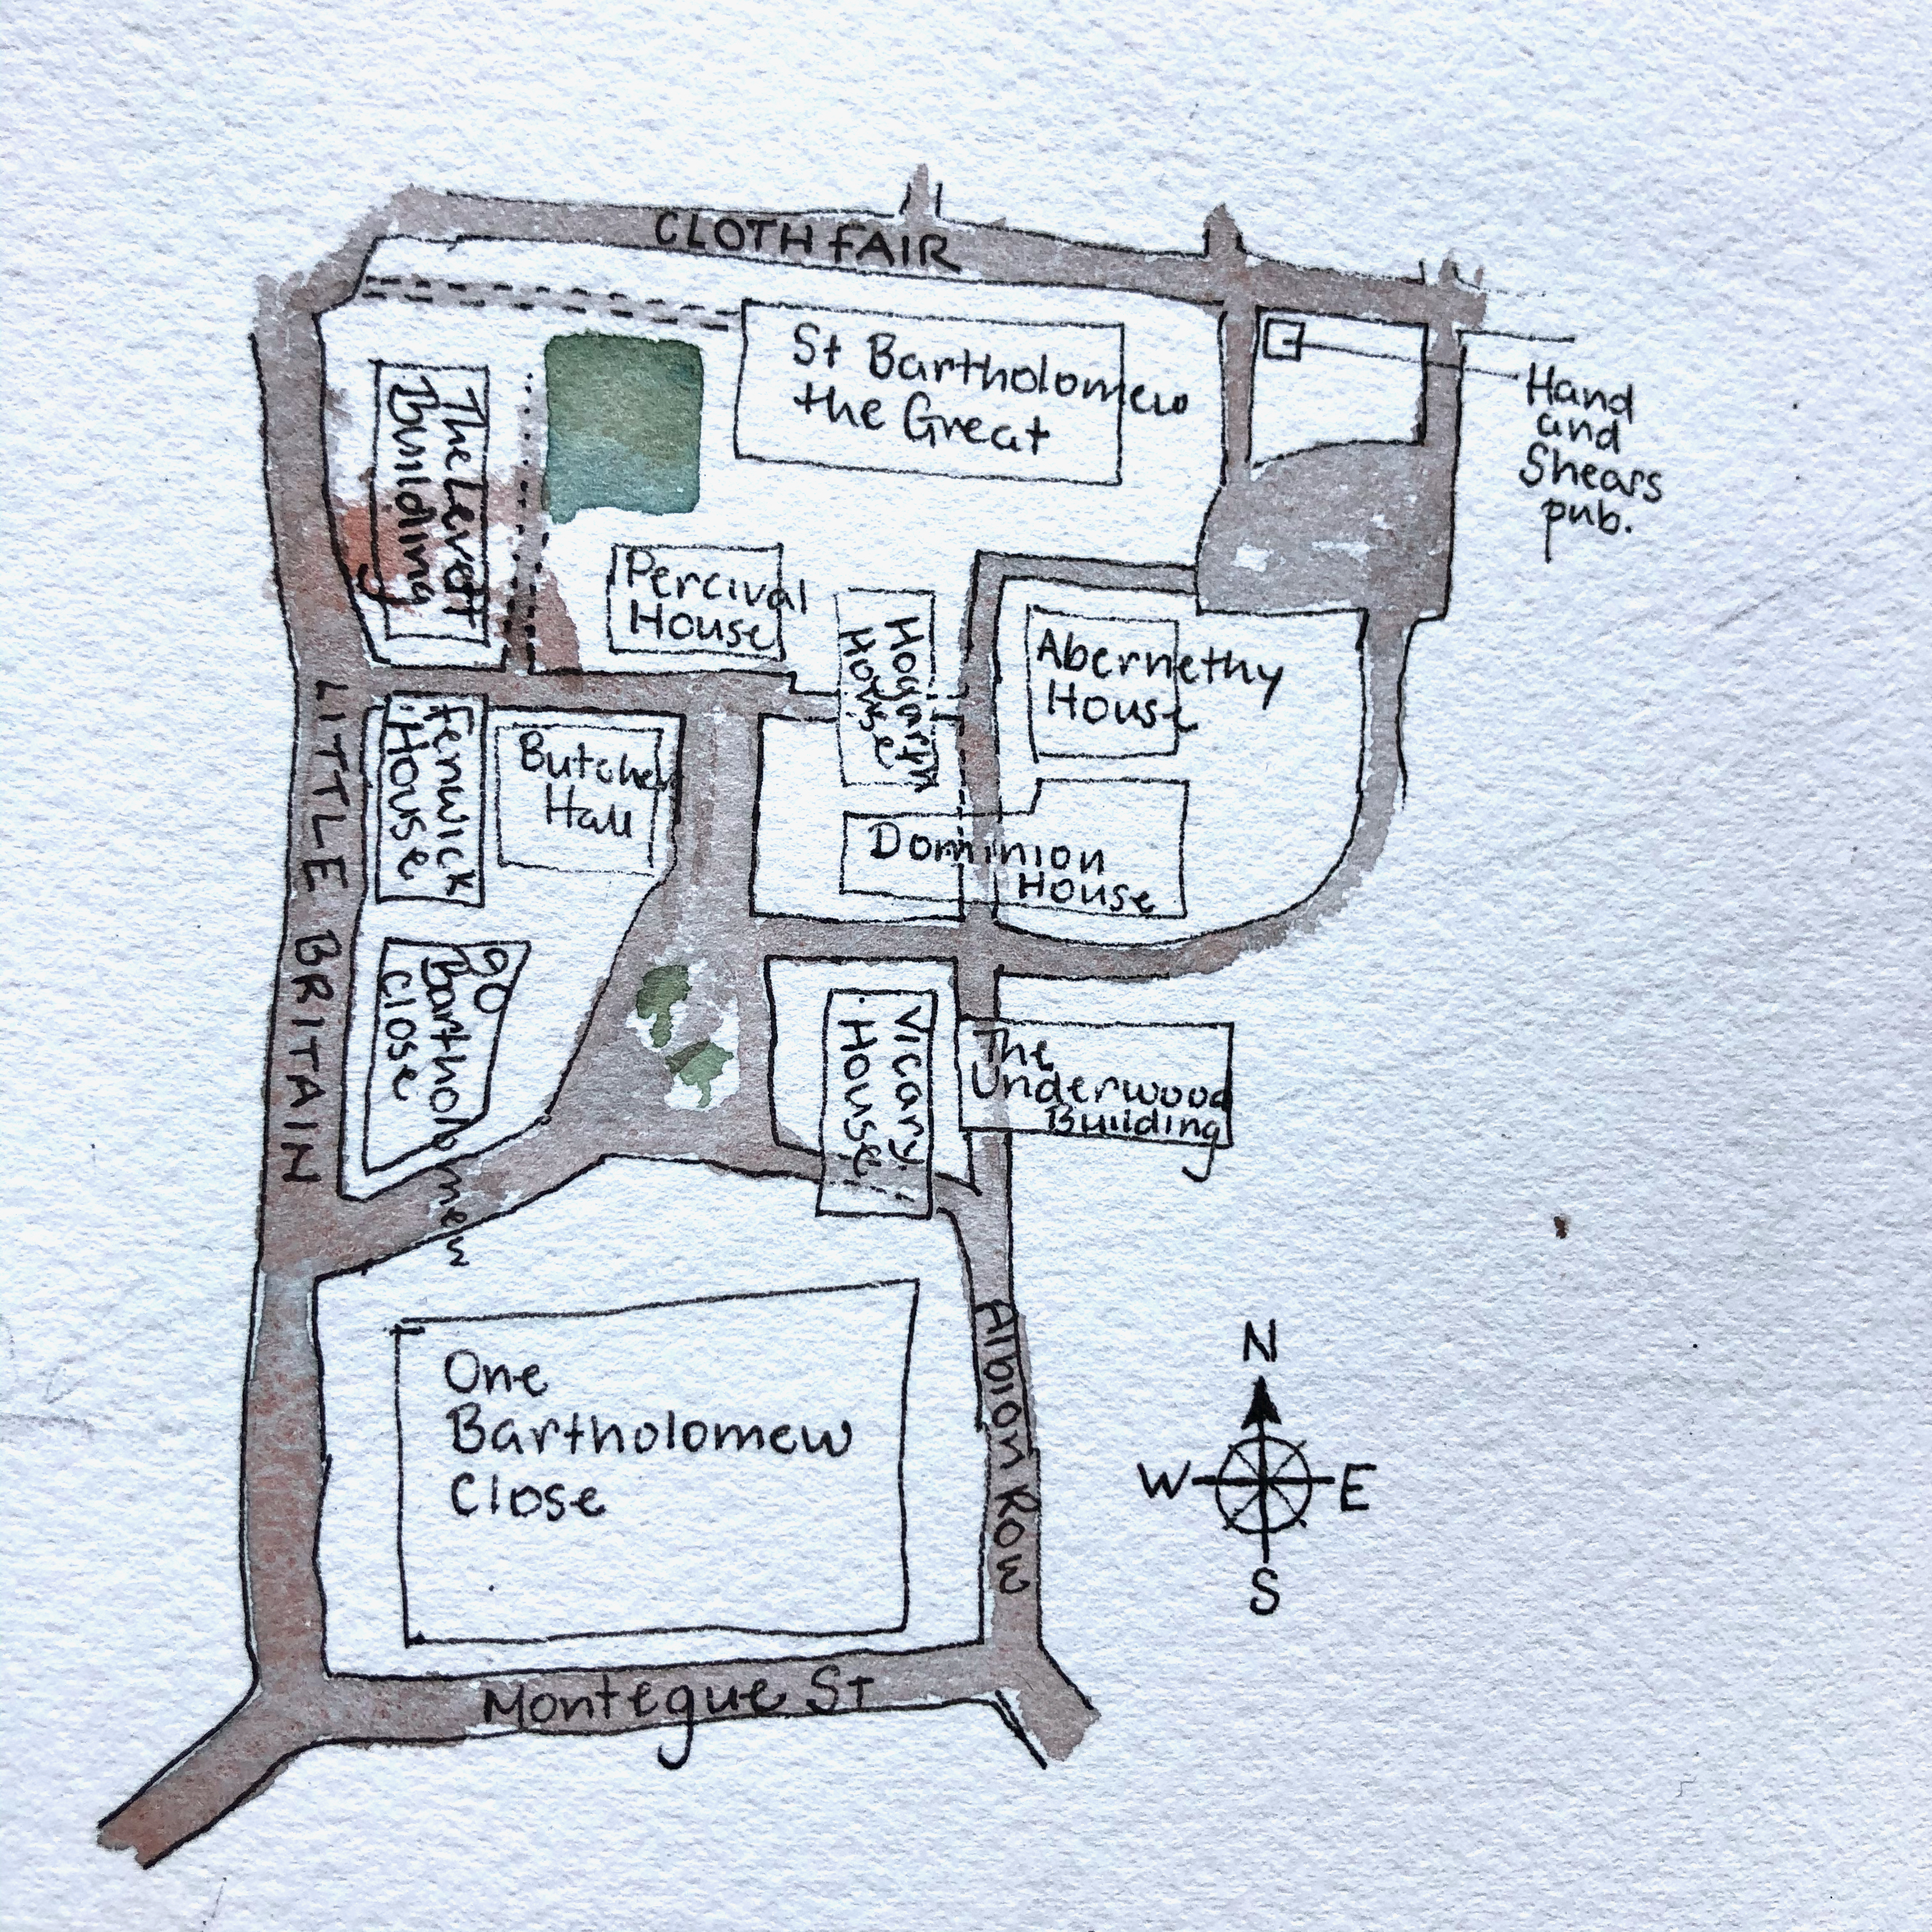 CLOTH FAIR
St Bartholomew
the Great
Hand
and
Shears
pub.
The Levett
Building
Percival
House
Hogarth
House
Abernethy
House
LITTLE BRITAIN
Fenwick
House
Butcher
Hall
Dominion
House
90
Bartholomew
Close
Vicary
House
The
Underwood
Building
One
Bartholomew
Close
Albion Row
Montegue St
N
W
E
S